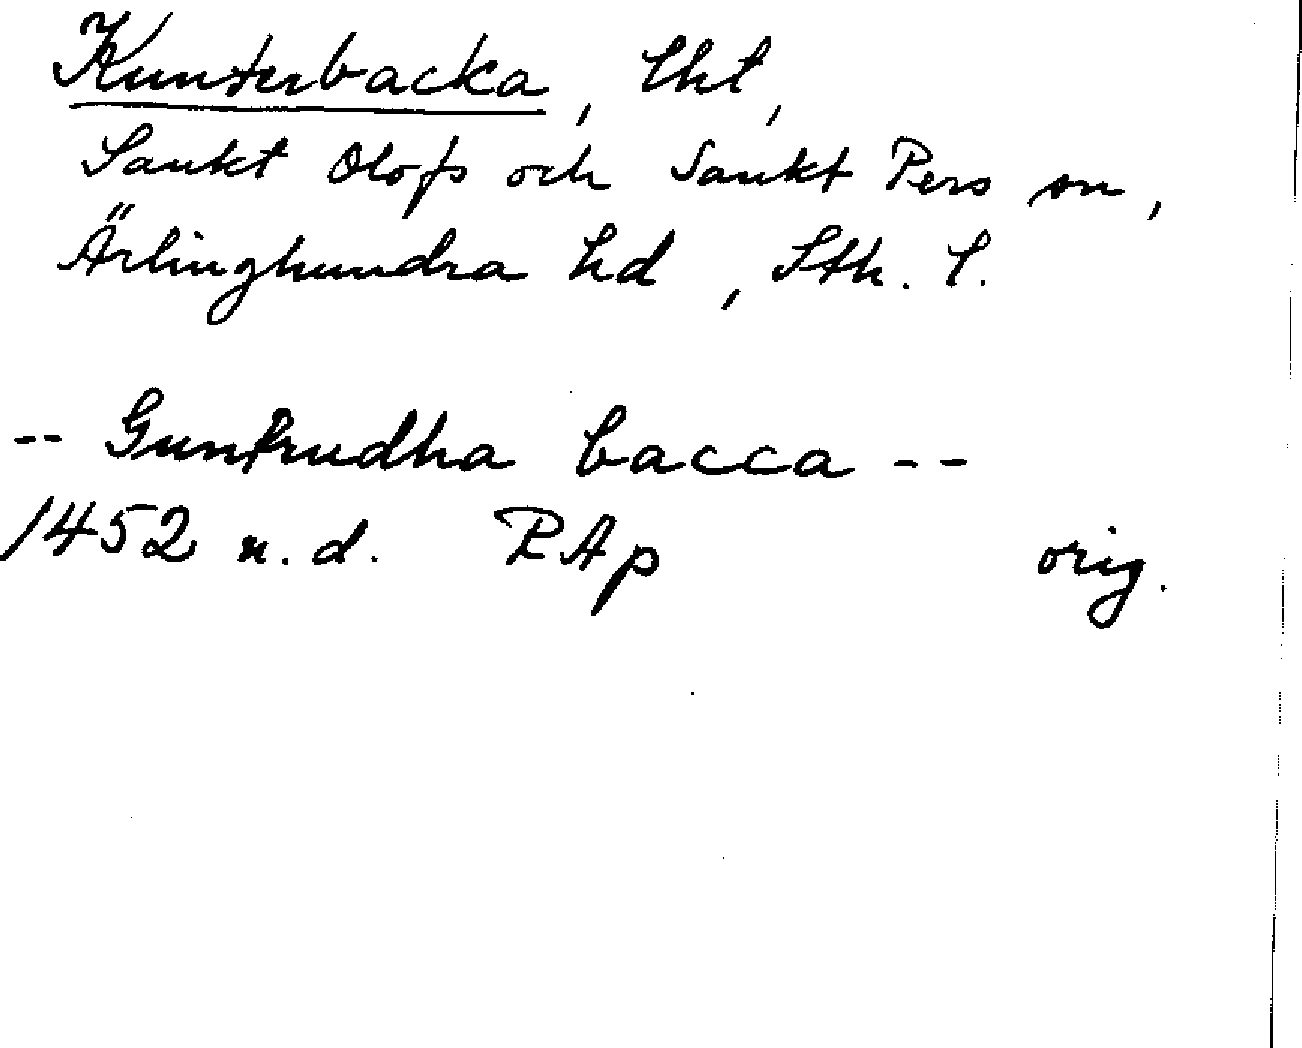 Kunsterbacka, lht,
Sankt Olofs och Sankt Pers sn,
Ärlinghundra hd, Sth. l.
-- Guntrudha bacca --
1452 u.d. RAp orig.